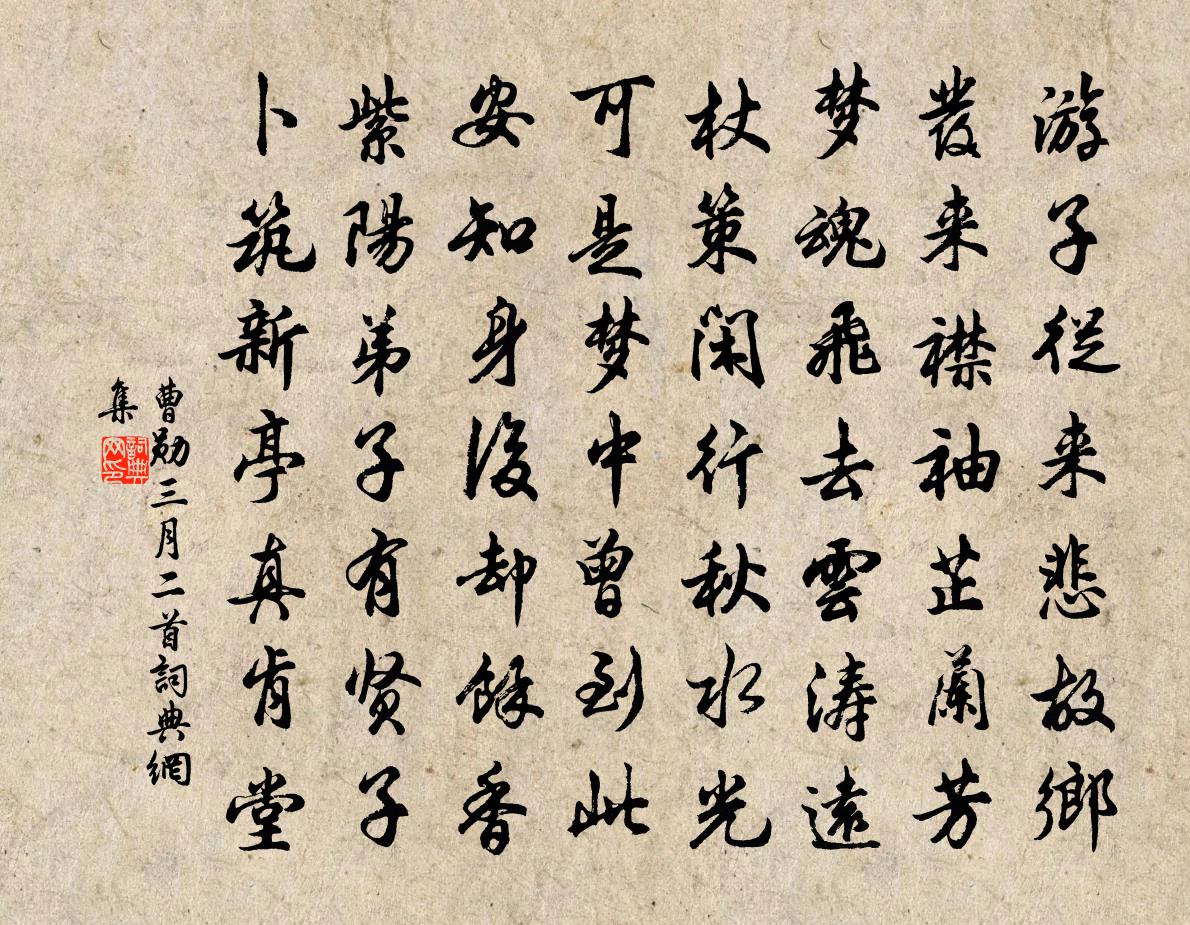 游子從来悲故鄉
發来襟袖芷蘭芳
梦魂飛去雲濤遠
杖策閑行秋水光
可是梦中曾到此
安知身後却餘香
紫陽弟子有贤子
卜筑新亭真肯堂
曹勛三月二首詞典網
集
詞典
网印